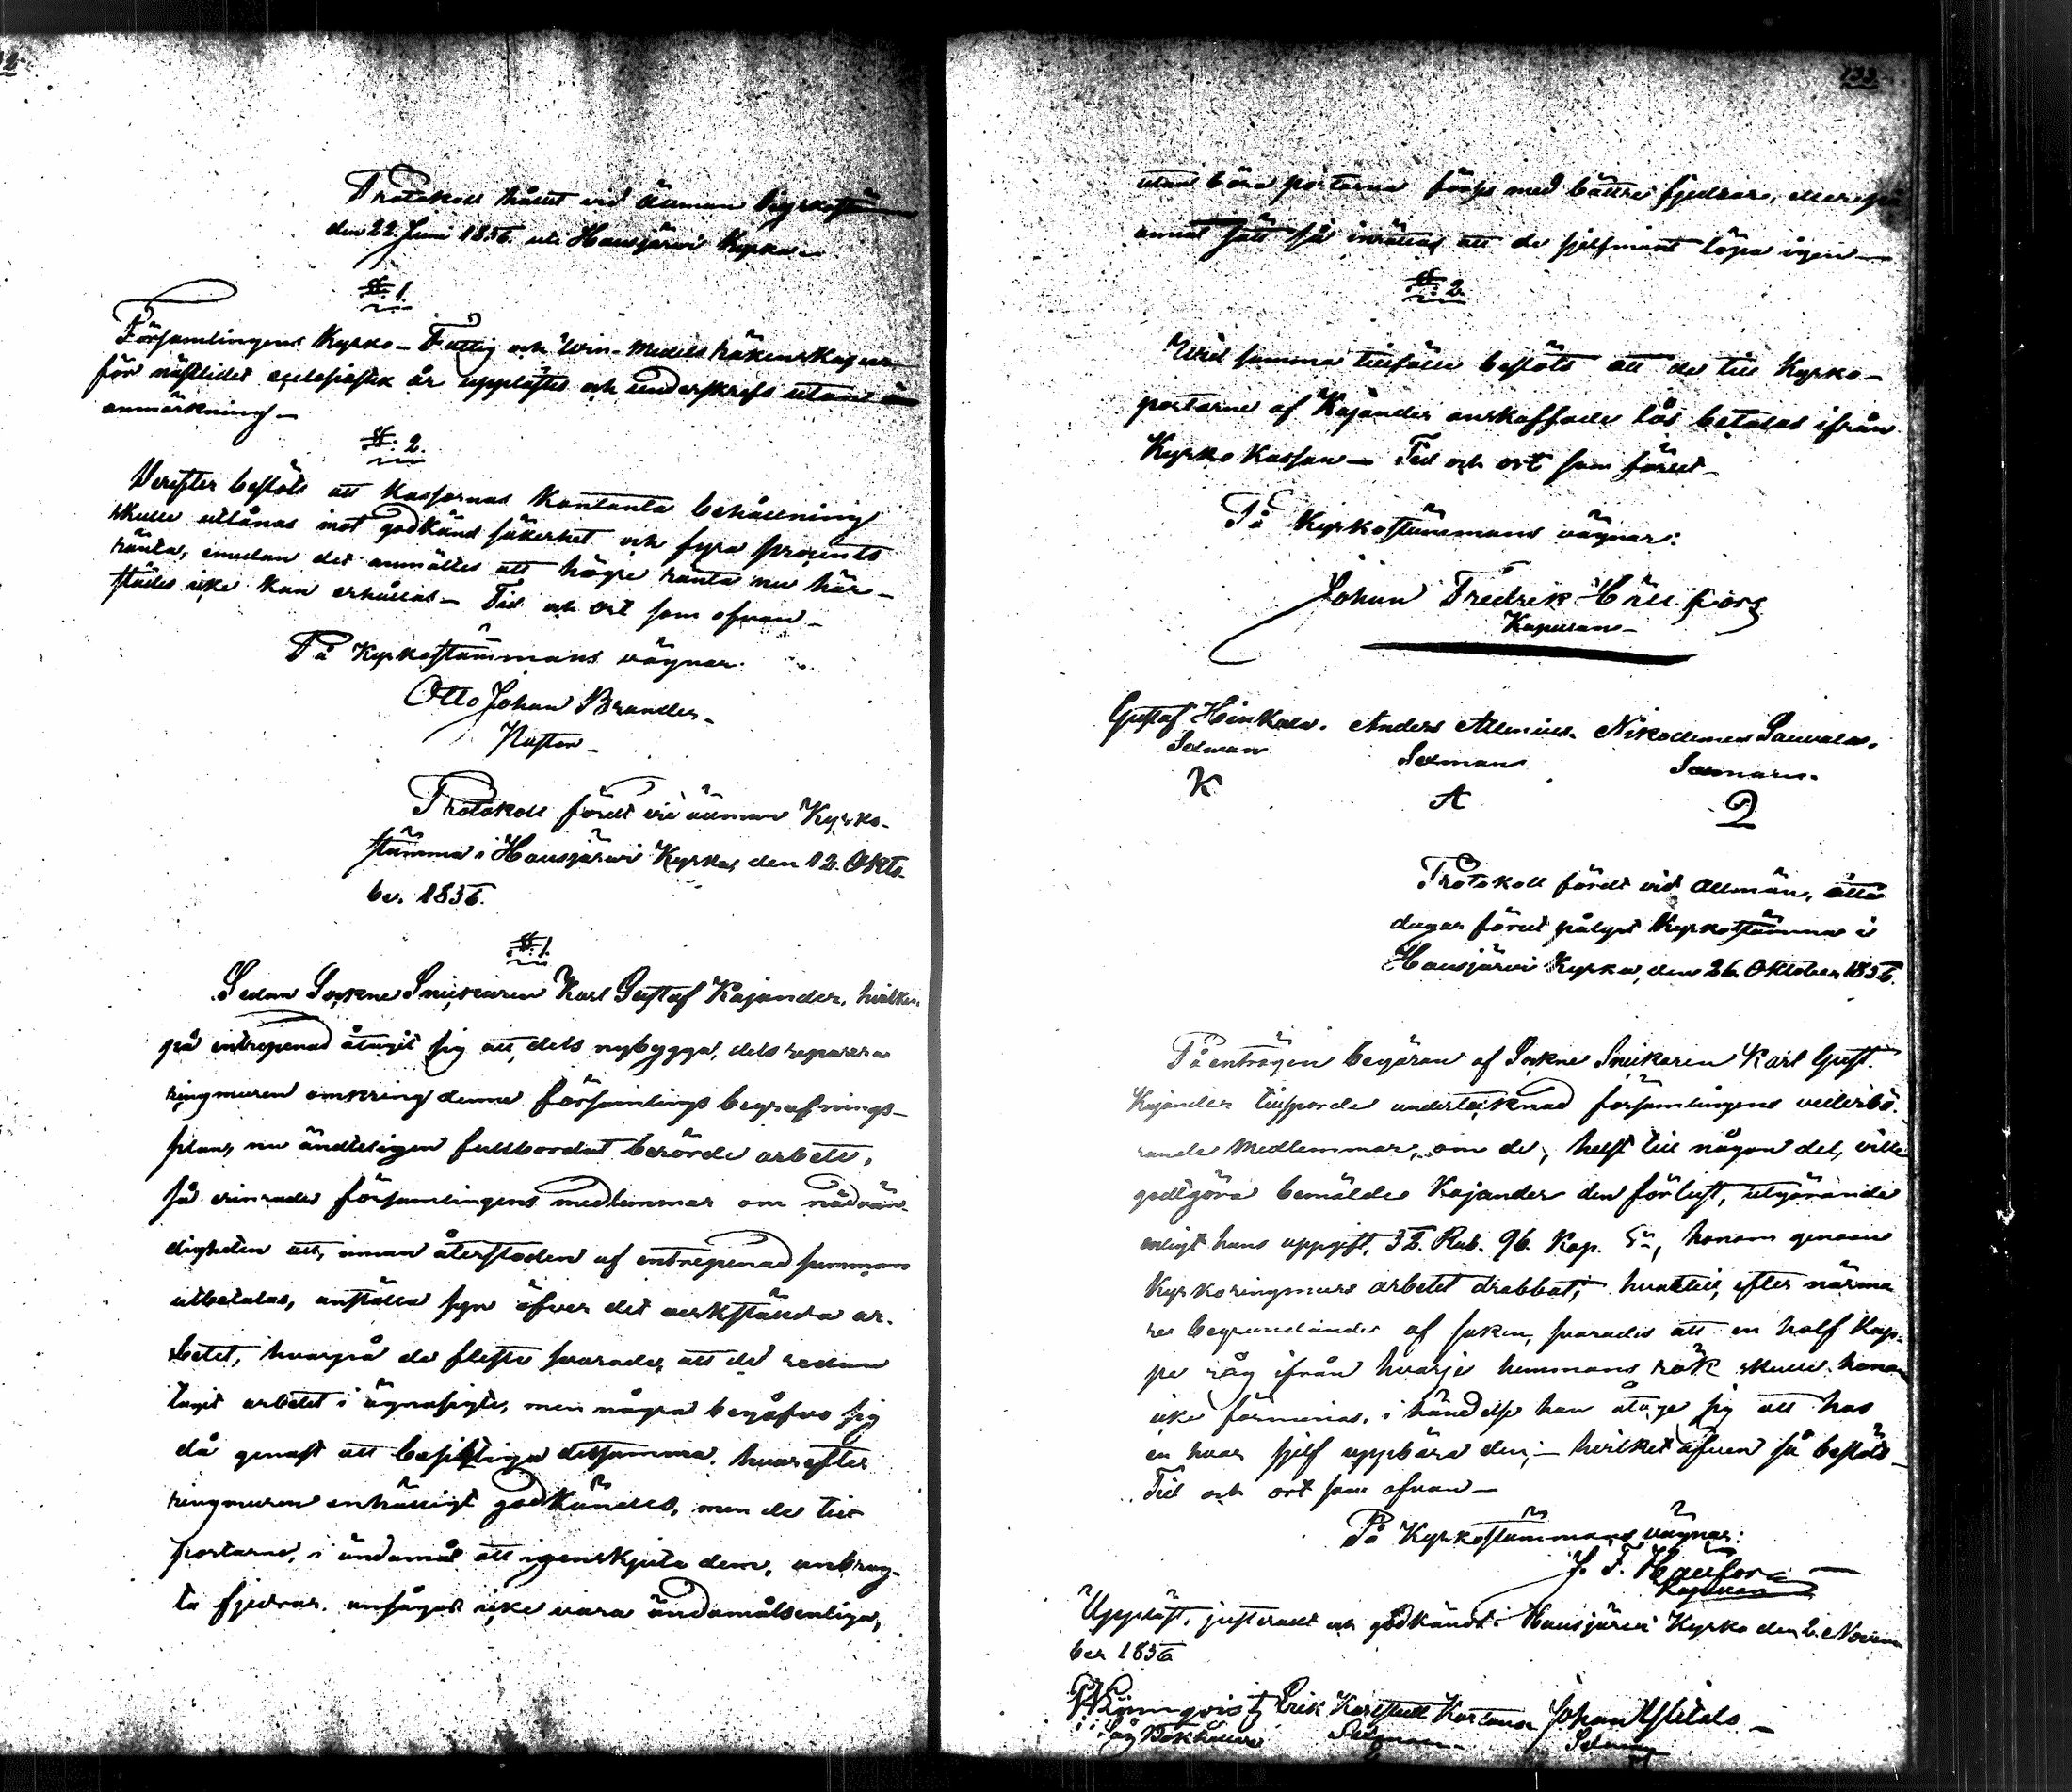 Protokoll hållit vid allmän Kyrkostäma
den 22. Juni 1856. uti Hausjärvi Kyrka.
§. 1.
Församlingens Kyrko- Fattig och Win- Medels räkenskaper
för nästlidet ecclesiastik år upplästes och underskrefs utan
anmärkning.
§. 2.
Derefter beslöts att Kassornas Kontanta behållning
skulle utlånas mot godkänd säkerhet och fyra procents
ränta, emedan det anmältes att högre ränta nu här-
städes icke kan erhållas. Tid och ort som ofvan.
På Kyrkostämmans vägnar:
Otto Johan Brander.
Pastor.
Protokoll fördt vid allmän Kyrko-
stämma i Hausjärvi Kyrka, den 12. Okto-
ber 1856.
§. 1.
Sedan Sockne Snickaren Karl Gustaf Kajander, hvilken
på entrepenad åtagit sig att, dels nybygga, dels reparera
ringmuren omkring denne församlings begrafnings-
plan, nu ändteligen fullbordat berörde arbete,
så erinrades församlingens medlemmar om nödvän-
digheten att, innan återstoden af entrepenad summan
utbetalas, anställa syn öfver det verkstälda ar-
betet, hvarpå de fleste svarade, att de redan
tagit arbetet i ögnasigte, men några begåfvo sig
då genast att besiktiga detsamma, hvarefter
ringmuren enhälligt godkändes, men de till
portarne, i ändamål att igenskjuta dem, anbrag-
ta fjedrar, ansågos icke vara ändamålsenliga,
133.
utan böra portarna förses med bättre fjedrar, eller på
annat sätt så inrättas att de sjelfmant löpa igen
§. 2.
Wid samma tillfälle beslöts att de till Kyrko-
portarne af Kajander anskaffade lås betalas ifrån
Kyrko Kassan. Tid och ort som förut.
På Kyrkostämmans vägnar:
Johan Fredrik Hällfors
Kapellan
Gustaf Hinkala. Anders Allenius. Nikodemus Sauvala.
Sexman Sexman Sexman.
K A
Protokoll fördt vid Allmän, åtta
dagar förut pålyst Kyrkostämma i
Hausjärvi Kyrka, den 26. Oktober 1856.
På enträgen begäran af Sockne Snickaren Karl Gust.
Kajander tillsporde undertecknad församlingens vederbö-
rande Medlemmar, om de, helst till någon del, ville
godtgöra bemälde Kajander den förlust, utgörande
enligt hans uppgift, 32. Rub. 96. Kop. Sr, honom genom
Kyrkoringmurs arbetet drabbat; hvartill, efter närma-
re begrundande af saken, svarades att en half Kap-
pe råg ifrån hvarje hemmans rök skulle honom
icke förmenas, i händelse han åtoge sig att hos
en hvar sjelf uppbära den; hvilket äfven så beslöts
Tid och ort som ofvan
På Kyrkostämmans vägnar:
J. F. Hällfors
Kapellan
Uppläst, justeradt och godkändt i Hausjärvi Kyrka den 2. Novem
ber 1856
Rönnqvist Erik Karlstedt Johan
Bokhållare Sexman Sexman